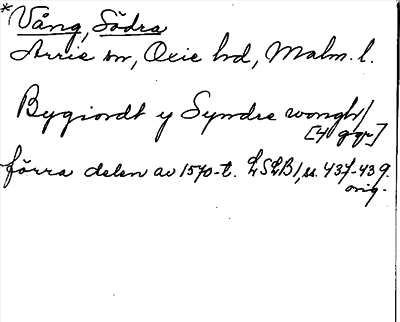 *Vång, Södra
Arrie sn, Oxie hd, Malm. l.
Bygiordt y Syndre wongh/
[4 ggr]
förra delen av 1570-t. LSLB1, s. 437-439.
orig.